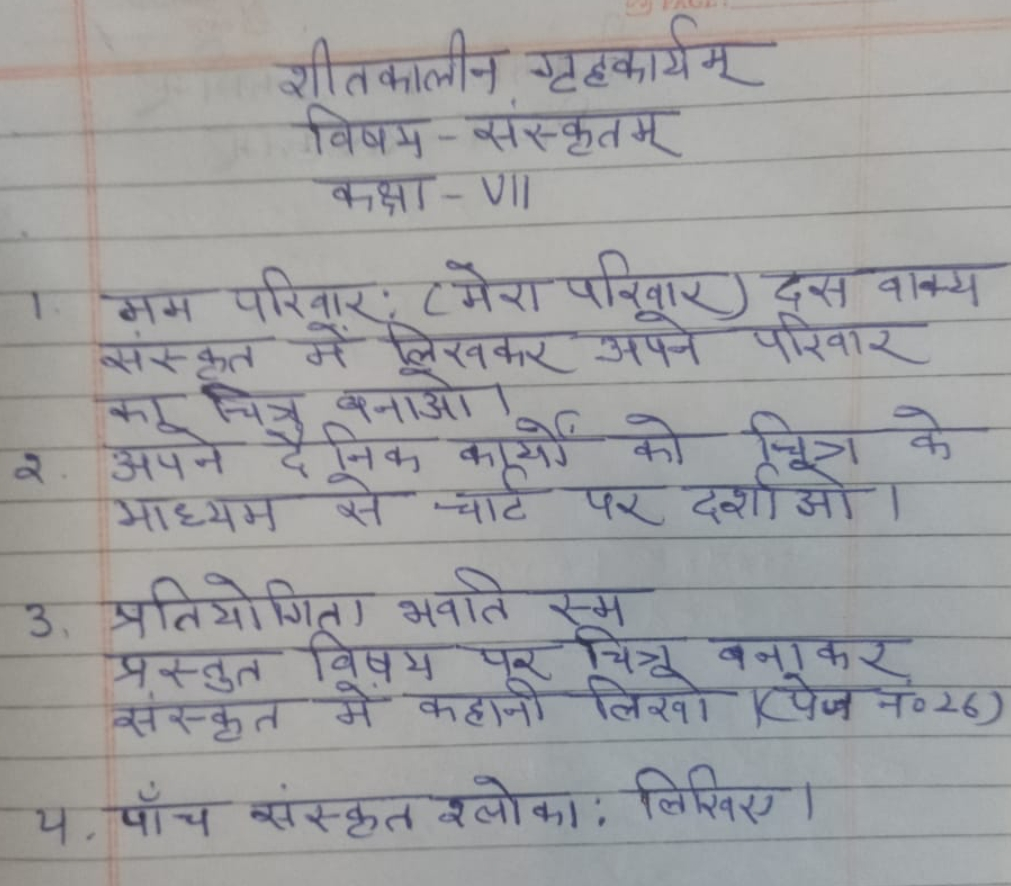 शीतकालीन गृहकार्यम्
विषय - संस्कृतम्
कक्षा - VII
1. मम परिवार: (मेरा परिवार) दस वाक्य
संस्कृत में लिखकर अपने परिवार
का चित्र बनाओ।
२. अपने दैनिक कार्यों को चित्र के
माध्यम से चार्ट पर दर्शाओ।
3. प्रतियोगिता भवति स्म
प्रस्तुत विषय पर चित्र बनाकर
संस्कृत में कहानी लिखो।(पेज नं०26)
4. पाँच संस्कृत श्लोका: लिखिए।